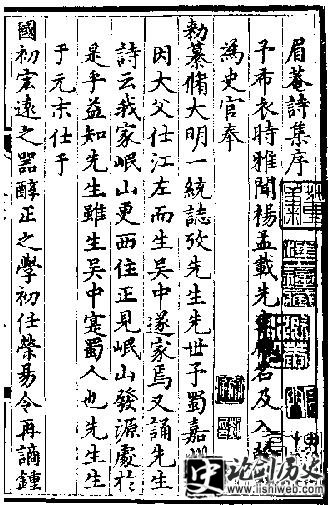 眉菴詩集序
予布衣時雅聞楊孟載先詩名及入
為史官奉
勑纂脩大明一統誌攷先生先世予蜀嘉
因大父仕江左而生吳中遂家焉又誦先生
詩云我家岷山更西住正見岷山發源處於
是乎益知先生雖生吳中寔蜀人也先生生
于元末仕于
國初宏遠之器醇正之學初任滎易令再謫鍾
史 论剑历史
www.lishiweb.com